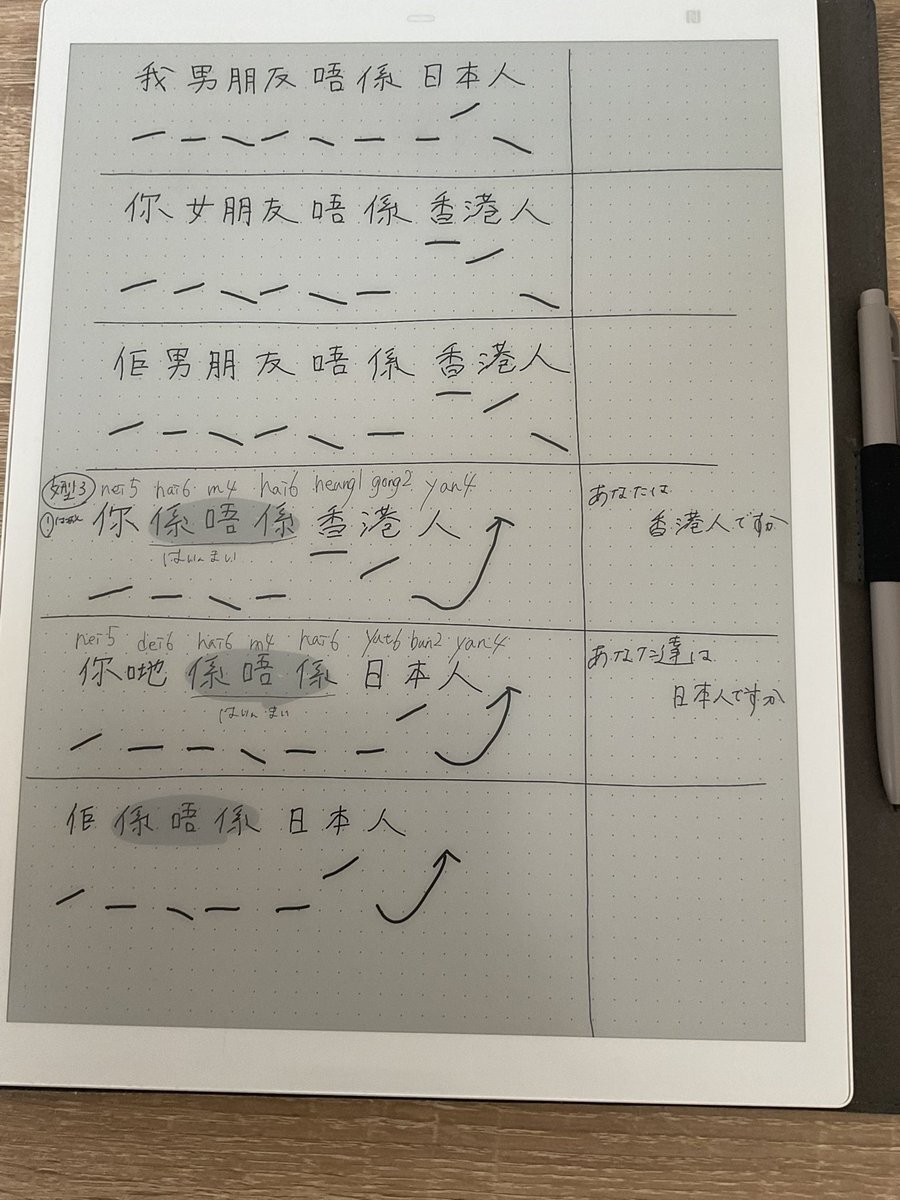 我男朋友唔係日本人
你女朋友唔係香港人
佢男朋友唔係香港人
文型3 nei5 hai6 m4 hai6 heung1 gong2 yan4
① 你係唔係香港人
はいんまい
あなたは
香港人ですか
nei5 dei6 hai6 m4 hai6 yat6 bun2 yan4
你哋係唔係日本人
はいんまい
あなた達は
日本人ですか
佢係唔係日本人